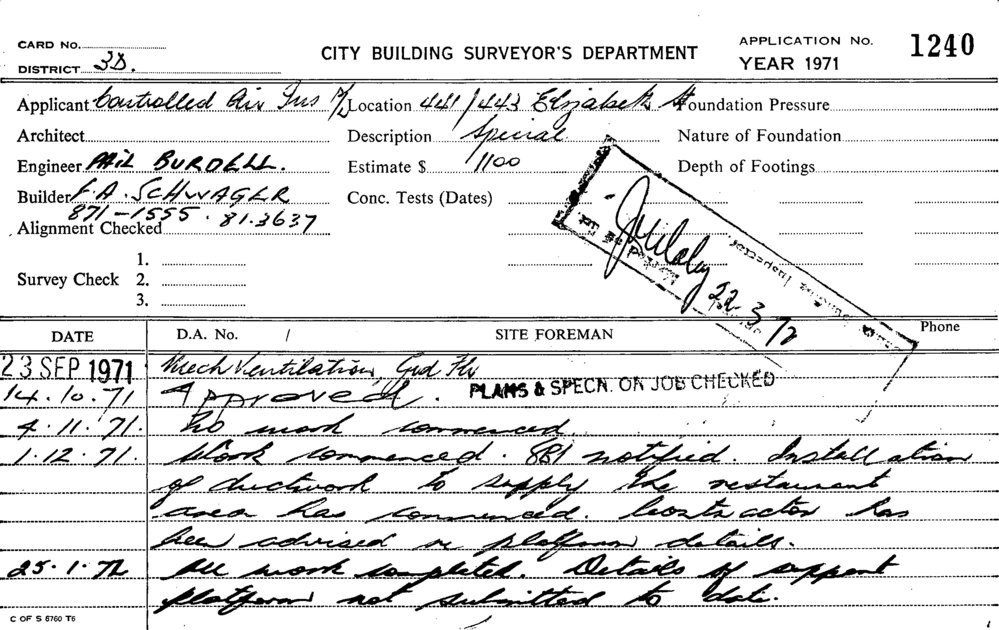 CARD No.
DISTRICT 3D.
CITY BUILDING SURVEYOR'S DEPARTMENT
APPLICATION No. 1240
YEAR 1971
Applicant Controlled Air Ins P/L Location 441/443 Elizabeth St Foundation Pressure
Architect Description Special Nature of Foundation
Engineer PHIL BURDELL. Estimate $ 1100 Depth of Footings
Builder F.A. SCHWAGER Conc. Tests (Dates)
871-1555 . 81.3637
Alignment Checked
1.
Survey Check 2.
3.
22 3/72
DATE D.A. No. / SITE FOREMAN Phone
23 SEP 1971 Mech Ventilation, Grd Flr
PLANS & SPECN. ON JOB CHECKED
14.10.71 Approved.
4.11.71. No work commenced
1.12.71. Work commenced. BBI notified. Installation
of ductwork to supply the restaurant
area has commenced. Contractor has
been advised re platform details.
25.1.72 All work completed. Details of support
platform not submitted to date.
C OF S 6760 T6